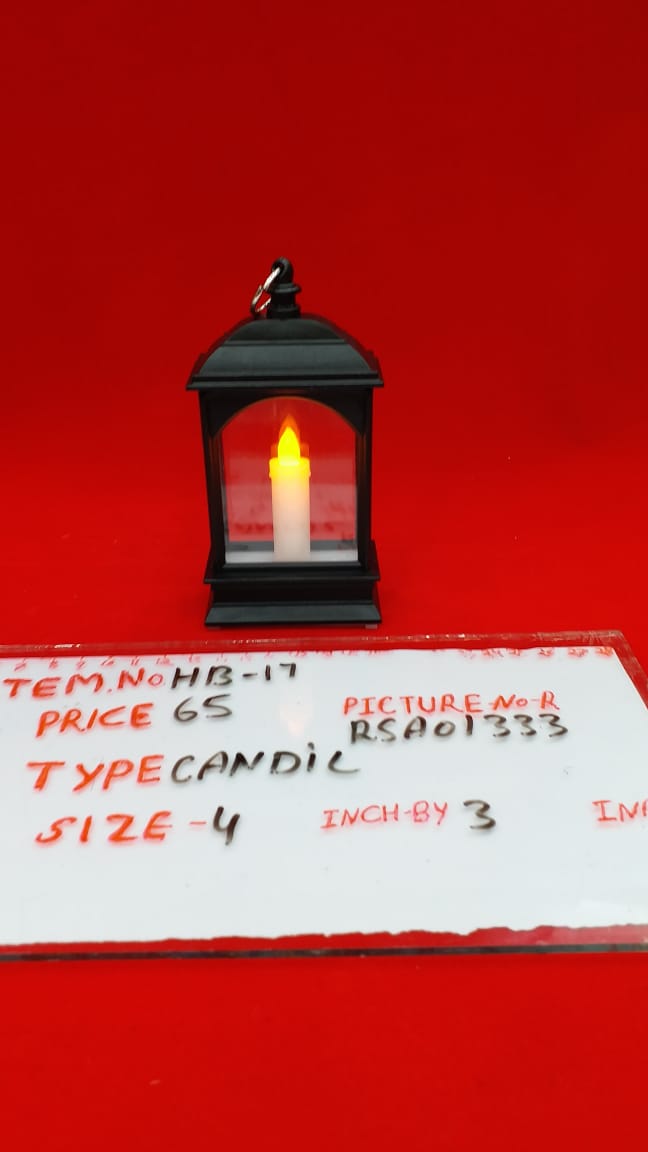 TEM.No HB-17
PRICE 65
PICTURE-No-R
RSA01333
TYPE CANDiL
SIZE-4 INCH-BY 3